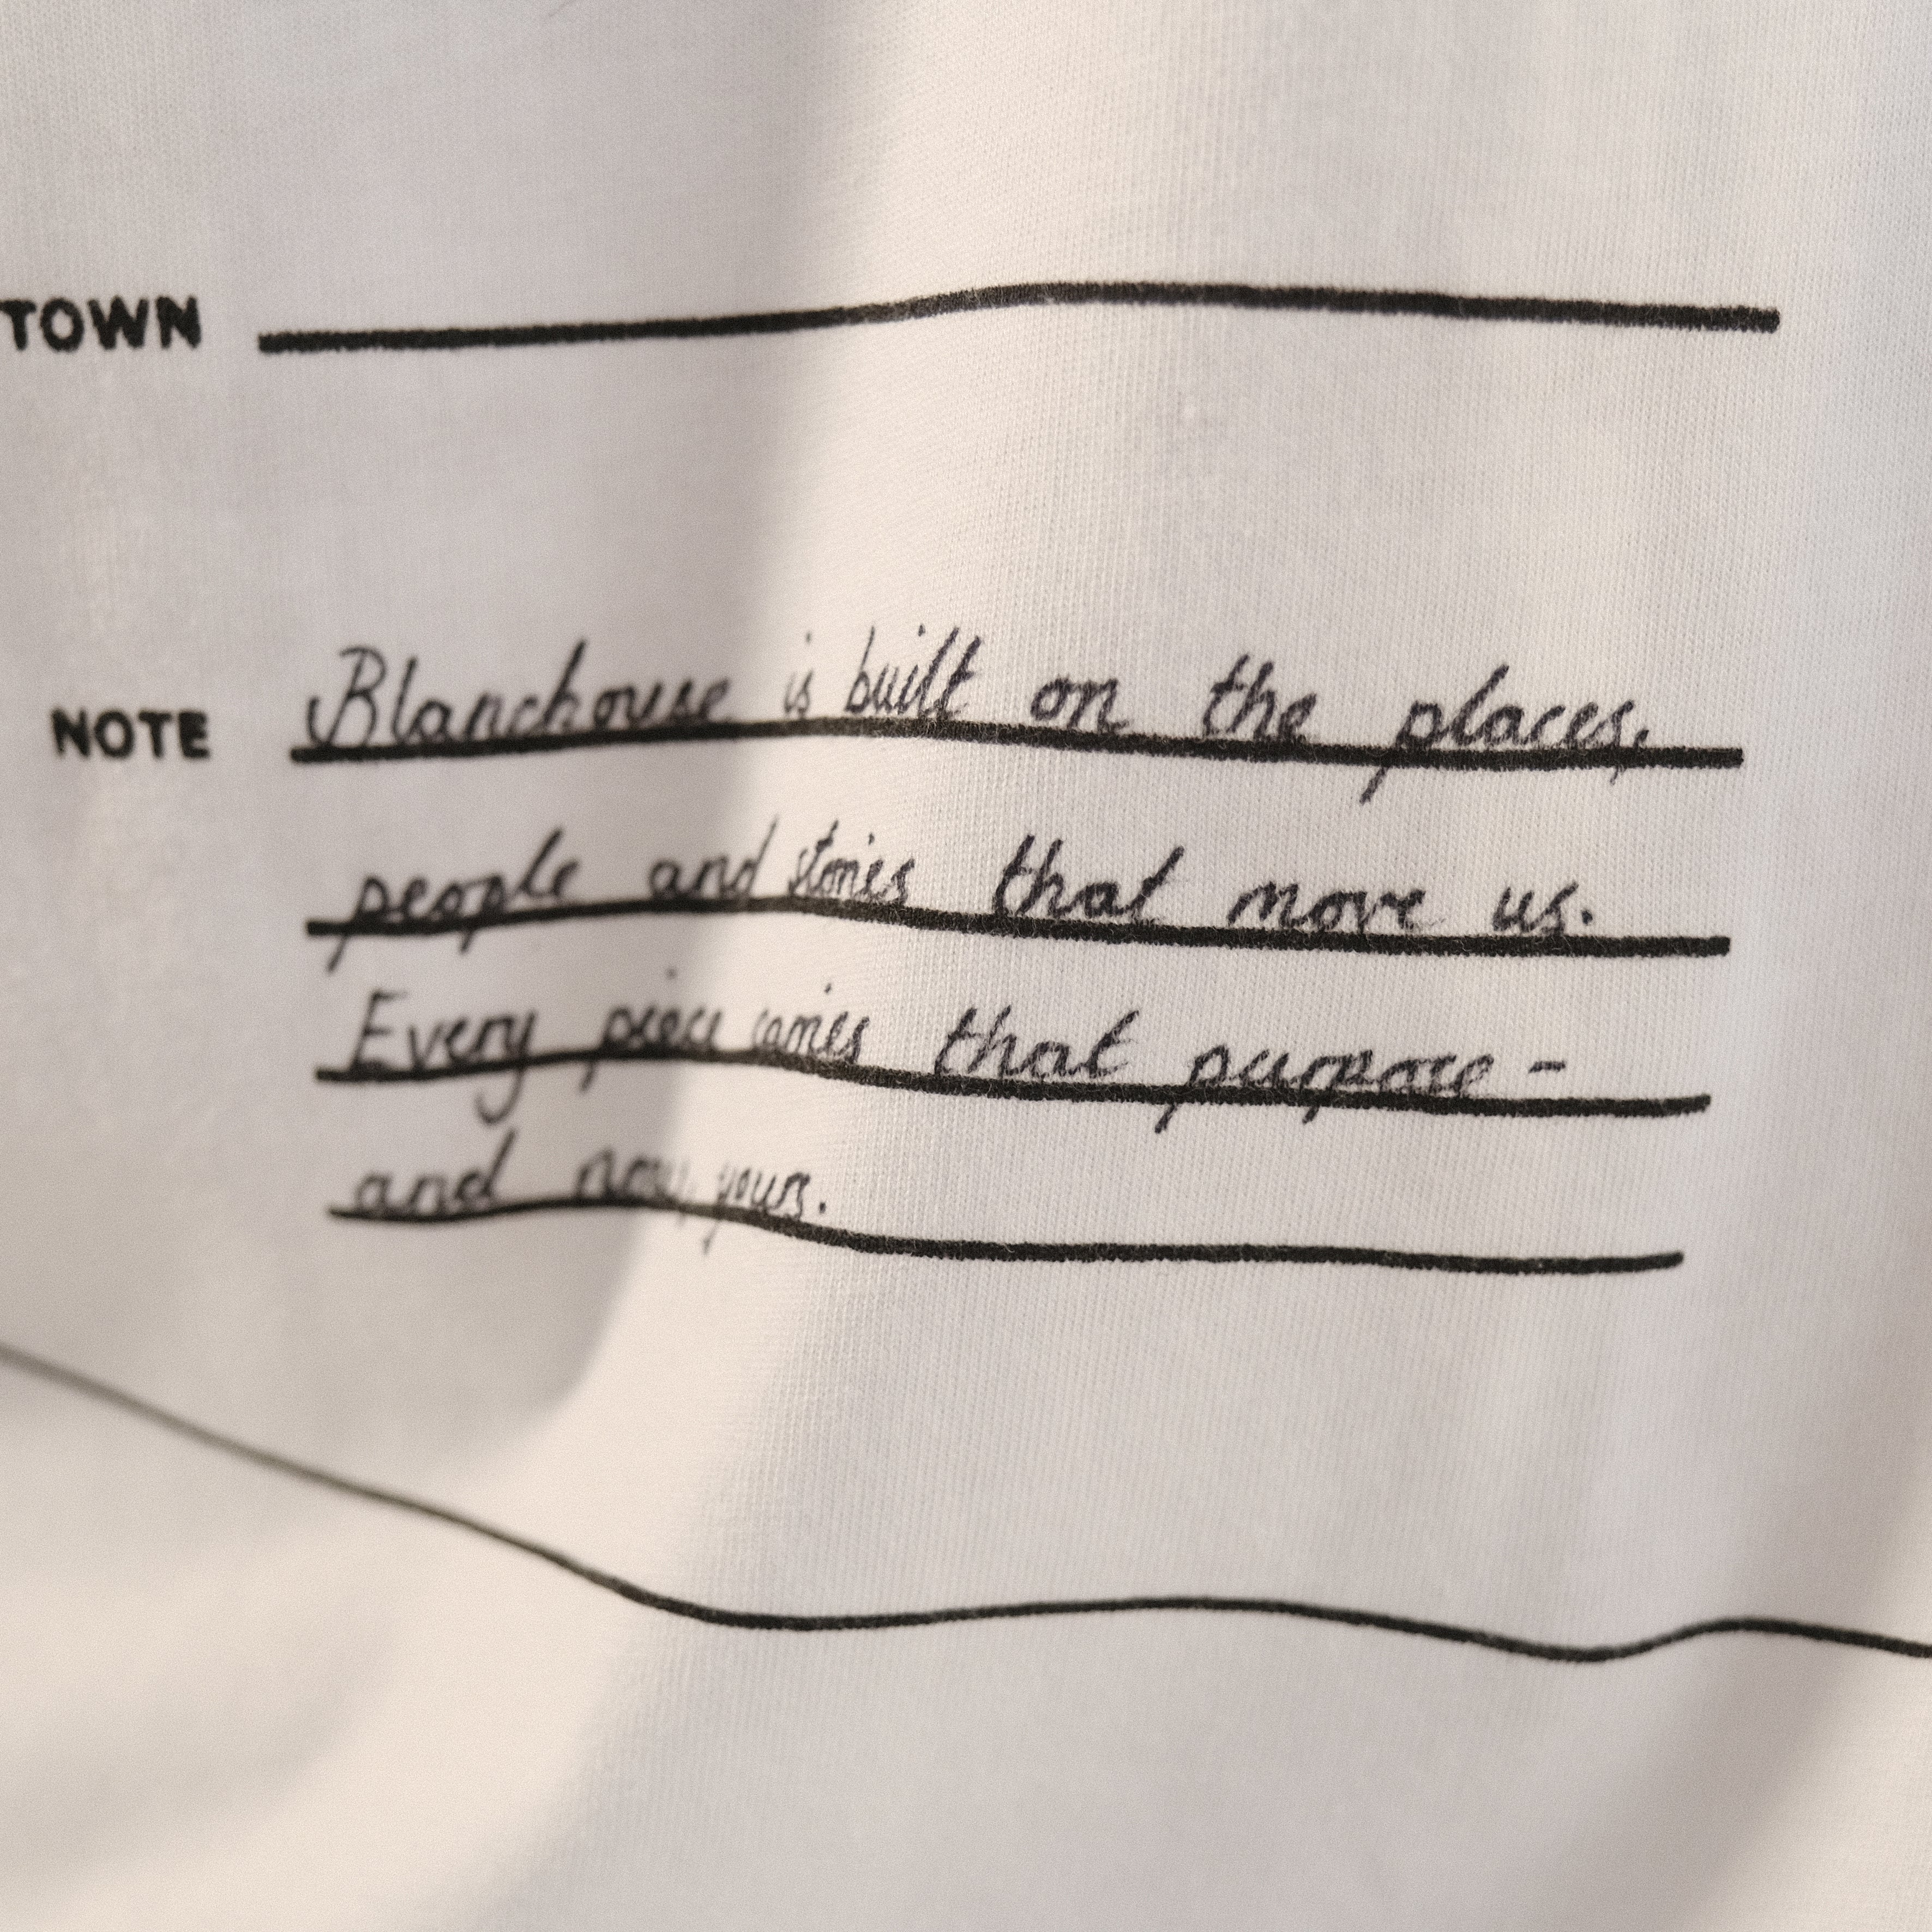 TOWN
NOTE Blanchouse is built on the places,
people and stories that move us.
Every piece carries that purpose -
and now, yours.